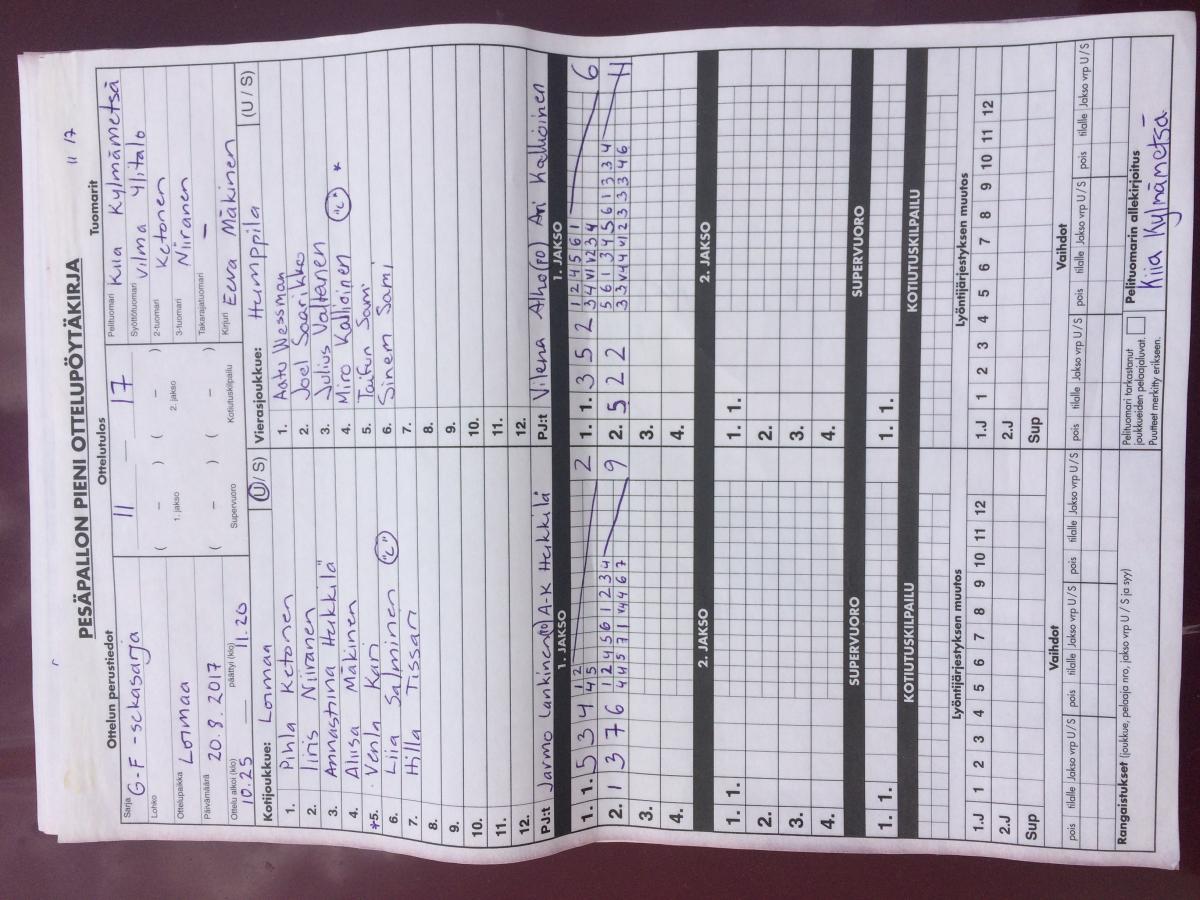 11 17
PESÄPALLON PIENI OTTELUPÖYTÄKIRJA
Ottelun perustiedot Ottelutulos Tuomarit
Sarja G-F-sekasarja
Lohko
Ottelupaikka Loimaa
Päivämäärä 20.8.2017
Ottelu alkoi (klo) päättyi (klo)
10.25 11.20
11 — 17
( – ) ( – )
1. jakso 2. jakso
( – ) ( – )
Supervuoro Kotiutuskilpailu
Pelituomari Kiia Kylmämetsä
Syöttötuomari Vilma Ylitalo
2-tuomari Ketonen
3-tuomari Niiranen
Takarajatuomari –
Kirjuri Eeva Mäkinen
Kotijoukkue: Loimaan (U / S)
1. Pihla Ketonen
2. Iiris Niiranen
3. Annastiina Heikkilä
4. Aliisa Mäkinen
*5. Venla Kari
6. Liia Salminen "C"
7. Hilla Tissari
8.
9.
10.
11.
12.
PJ:t Jarmo Lankinen A-K Heikkilä
Vierasjoukkue: Humppila (U / S)
1. Aatu Wessman
2. Joel Saarikko
3. Julius Valtanen
4. Miro Kallioinen "C" *
5. Taifun Sami
6. Sinem Sami
7.
8.
9.
10.
11.
12.
PJ:t Vilena Alho (PJ) Ari Kallioinen
1. JAKSO 1. JAKSO
1. 1. 5 3 4 1 2 2
4 5
2. 1 3 7 6 1 2 4 5 6 1 2 3 4 9
4 4 5 7 1 4 4 6 7
3.
4.
1. 1. 3 5 2 1 2 4 5 6 1 6
2. 5 2 2 5 6 1 3 4 5 6 1 3 3 4 11
3.
4.
2. JAKSO 2. JAKSO
1. 1. 1. 1.
2. 2.
3. 3.
4. 4.
SUPERVUORO SUPERVUORO
1. 1. 1. 1.
KOTIUTUSKILPAILU KOTIUTUSKILPAILU
Lyöntijärjestyksen muutos Lyöntijärjestyksen muutos
1.J 1 2 3 4 5 6 7 8 9 10 11 12 1.J 1 2 3 4 5 6 7 8 9 10 11 12
2.J 2.J
Sup Sup
Vaihdot Vaihdot
pois tilalle Jakso vrp U / S pois tilalle Jakso vrp U / S pois tilalle Jakso vrp U / S pois tilalle Jakso vrp U / S pois tilalle Jakso vrp U / S pois tilalle Jakso vrp U / S
Rangaistukset (joukkue, pelaaja nro, jakso vrp U / S ja syy)
Pelituomari tarkastanut
joukkueiden pelaajaluvat.
Puutteet merkitty erikseen.
Pelituomarin allekirjoitus
Kiia Kylmämetsä